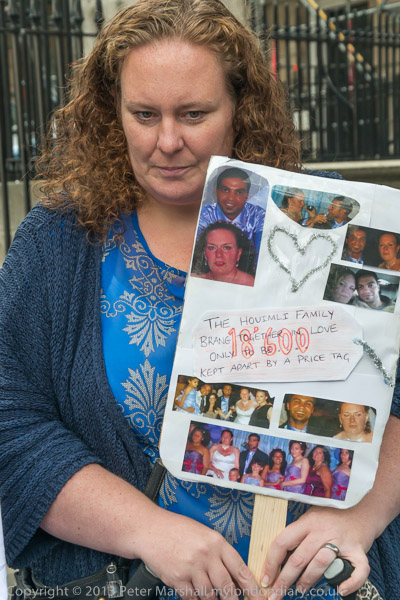 THE HOUIMLI FAMILY
BRANG TOGETHER IN LOVE
18,600
ONLY TO BE
KEPT APART BY A PRICE TAG
Copyright © 2013 Peter Marshall mylondondiary.co.uk